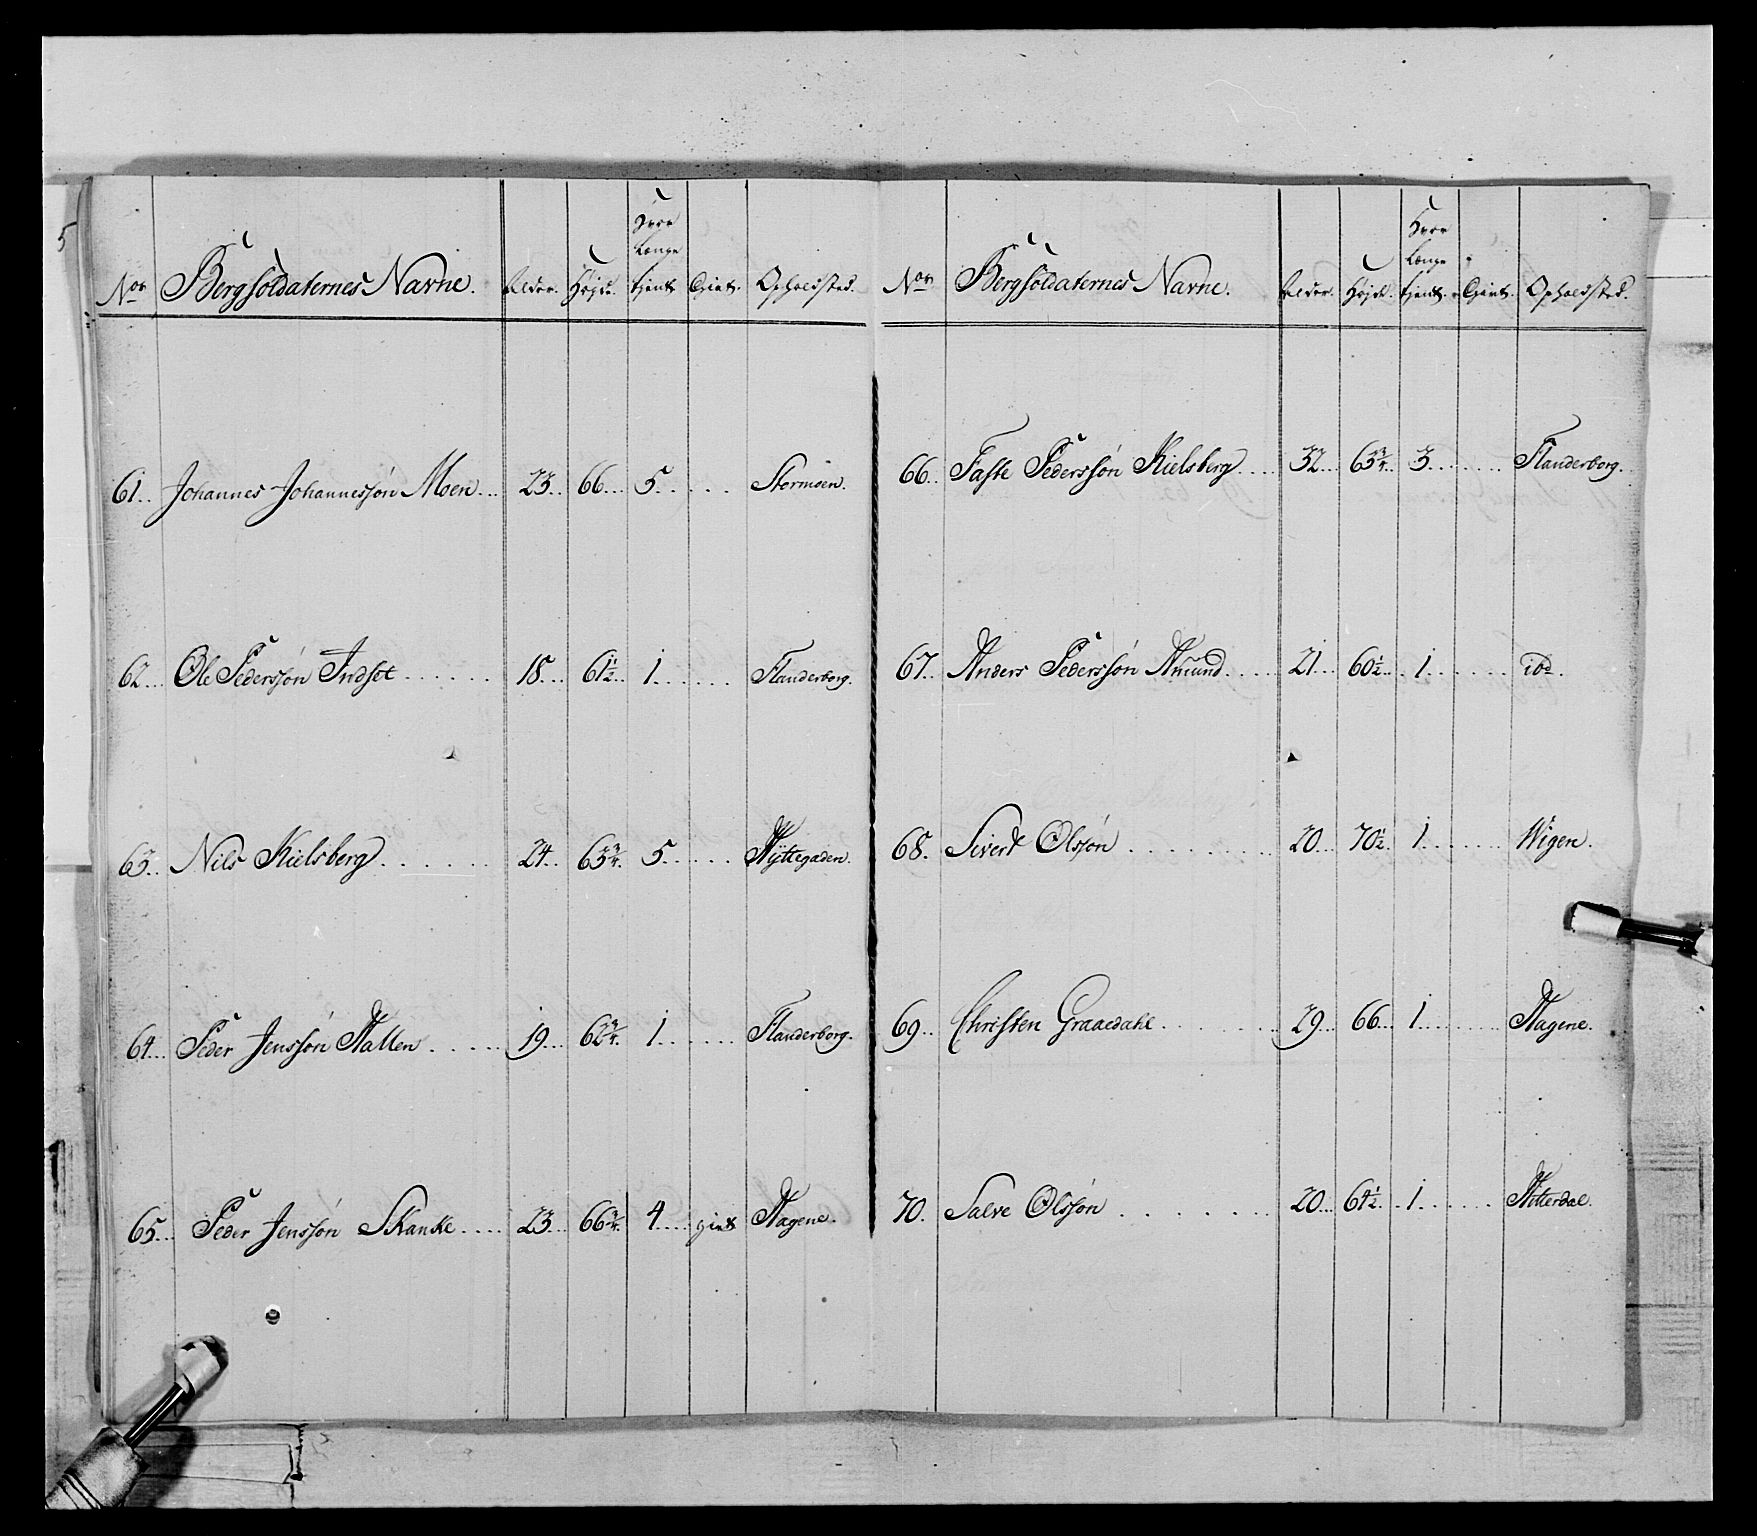 Nor Bergsoldaternes Navne. Alder. Højde. Hvor Længe tjent. Givt. Opholdsted.
61. Johannes Johannessøn Moen 23 66 5 Stormoen.
62 Ole Pederssøn Indset 18 61½ 1 Flanderborg.
63 Nils Kielsberg 24 63¾ 5 Hyttegaden.
64 Peder Jenssøn Hallen 19 62¾ 1 Flanderborg.
65 Peder Jenssøn Skancke 23 66¾ 4 givt Hagene.
Nor Bergsoldaternes Navne. Alder. Højde. Hvor Længe tjent. Givt. Opholdsted.
66 Faste Pederssøn Kielsberg 32 63¾ 3 Flanderborg.
67 Anders Pederssøn Amund 21 60½ 1 ibd.
68. Sivert Olssøn 20 70½ 1 Wigen.
69 Christen Graaedahl 29 66 1 Hagene.
70. Salve Olssøn 20 64½ 1 Hitterdal.